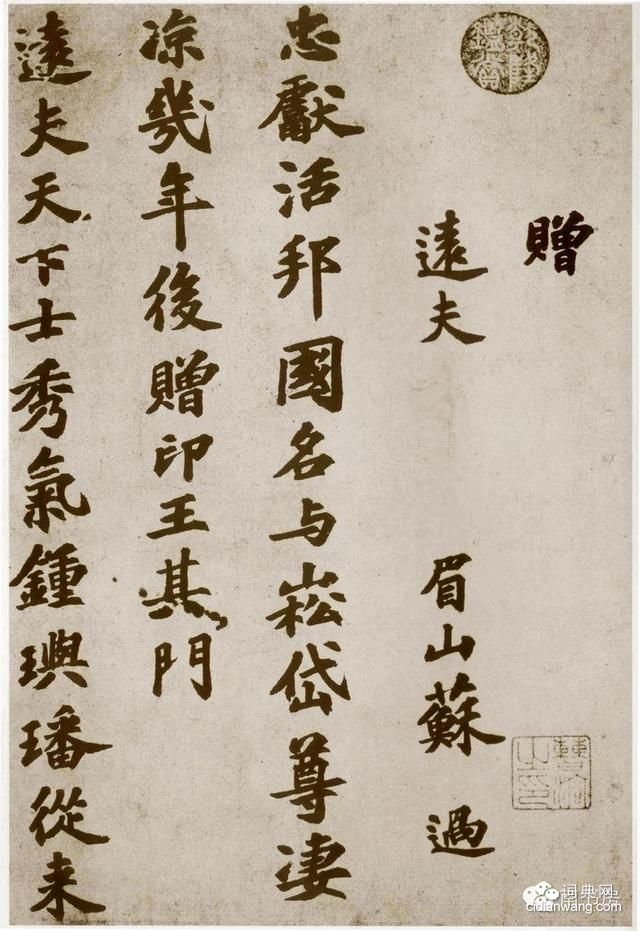 乾隆鑑賞
贈
遠夫
眉山蘇 過
忠獻活邦國名与崧岱尊凄
凉幾年後贈印王其門
遠夫天下士秀氣鍾璵璠從来
词典网
cidianwang.com